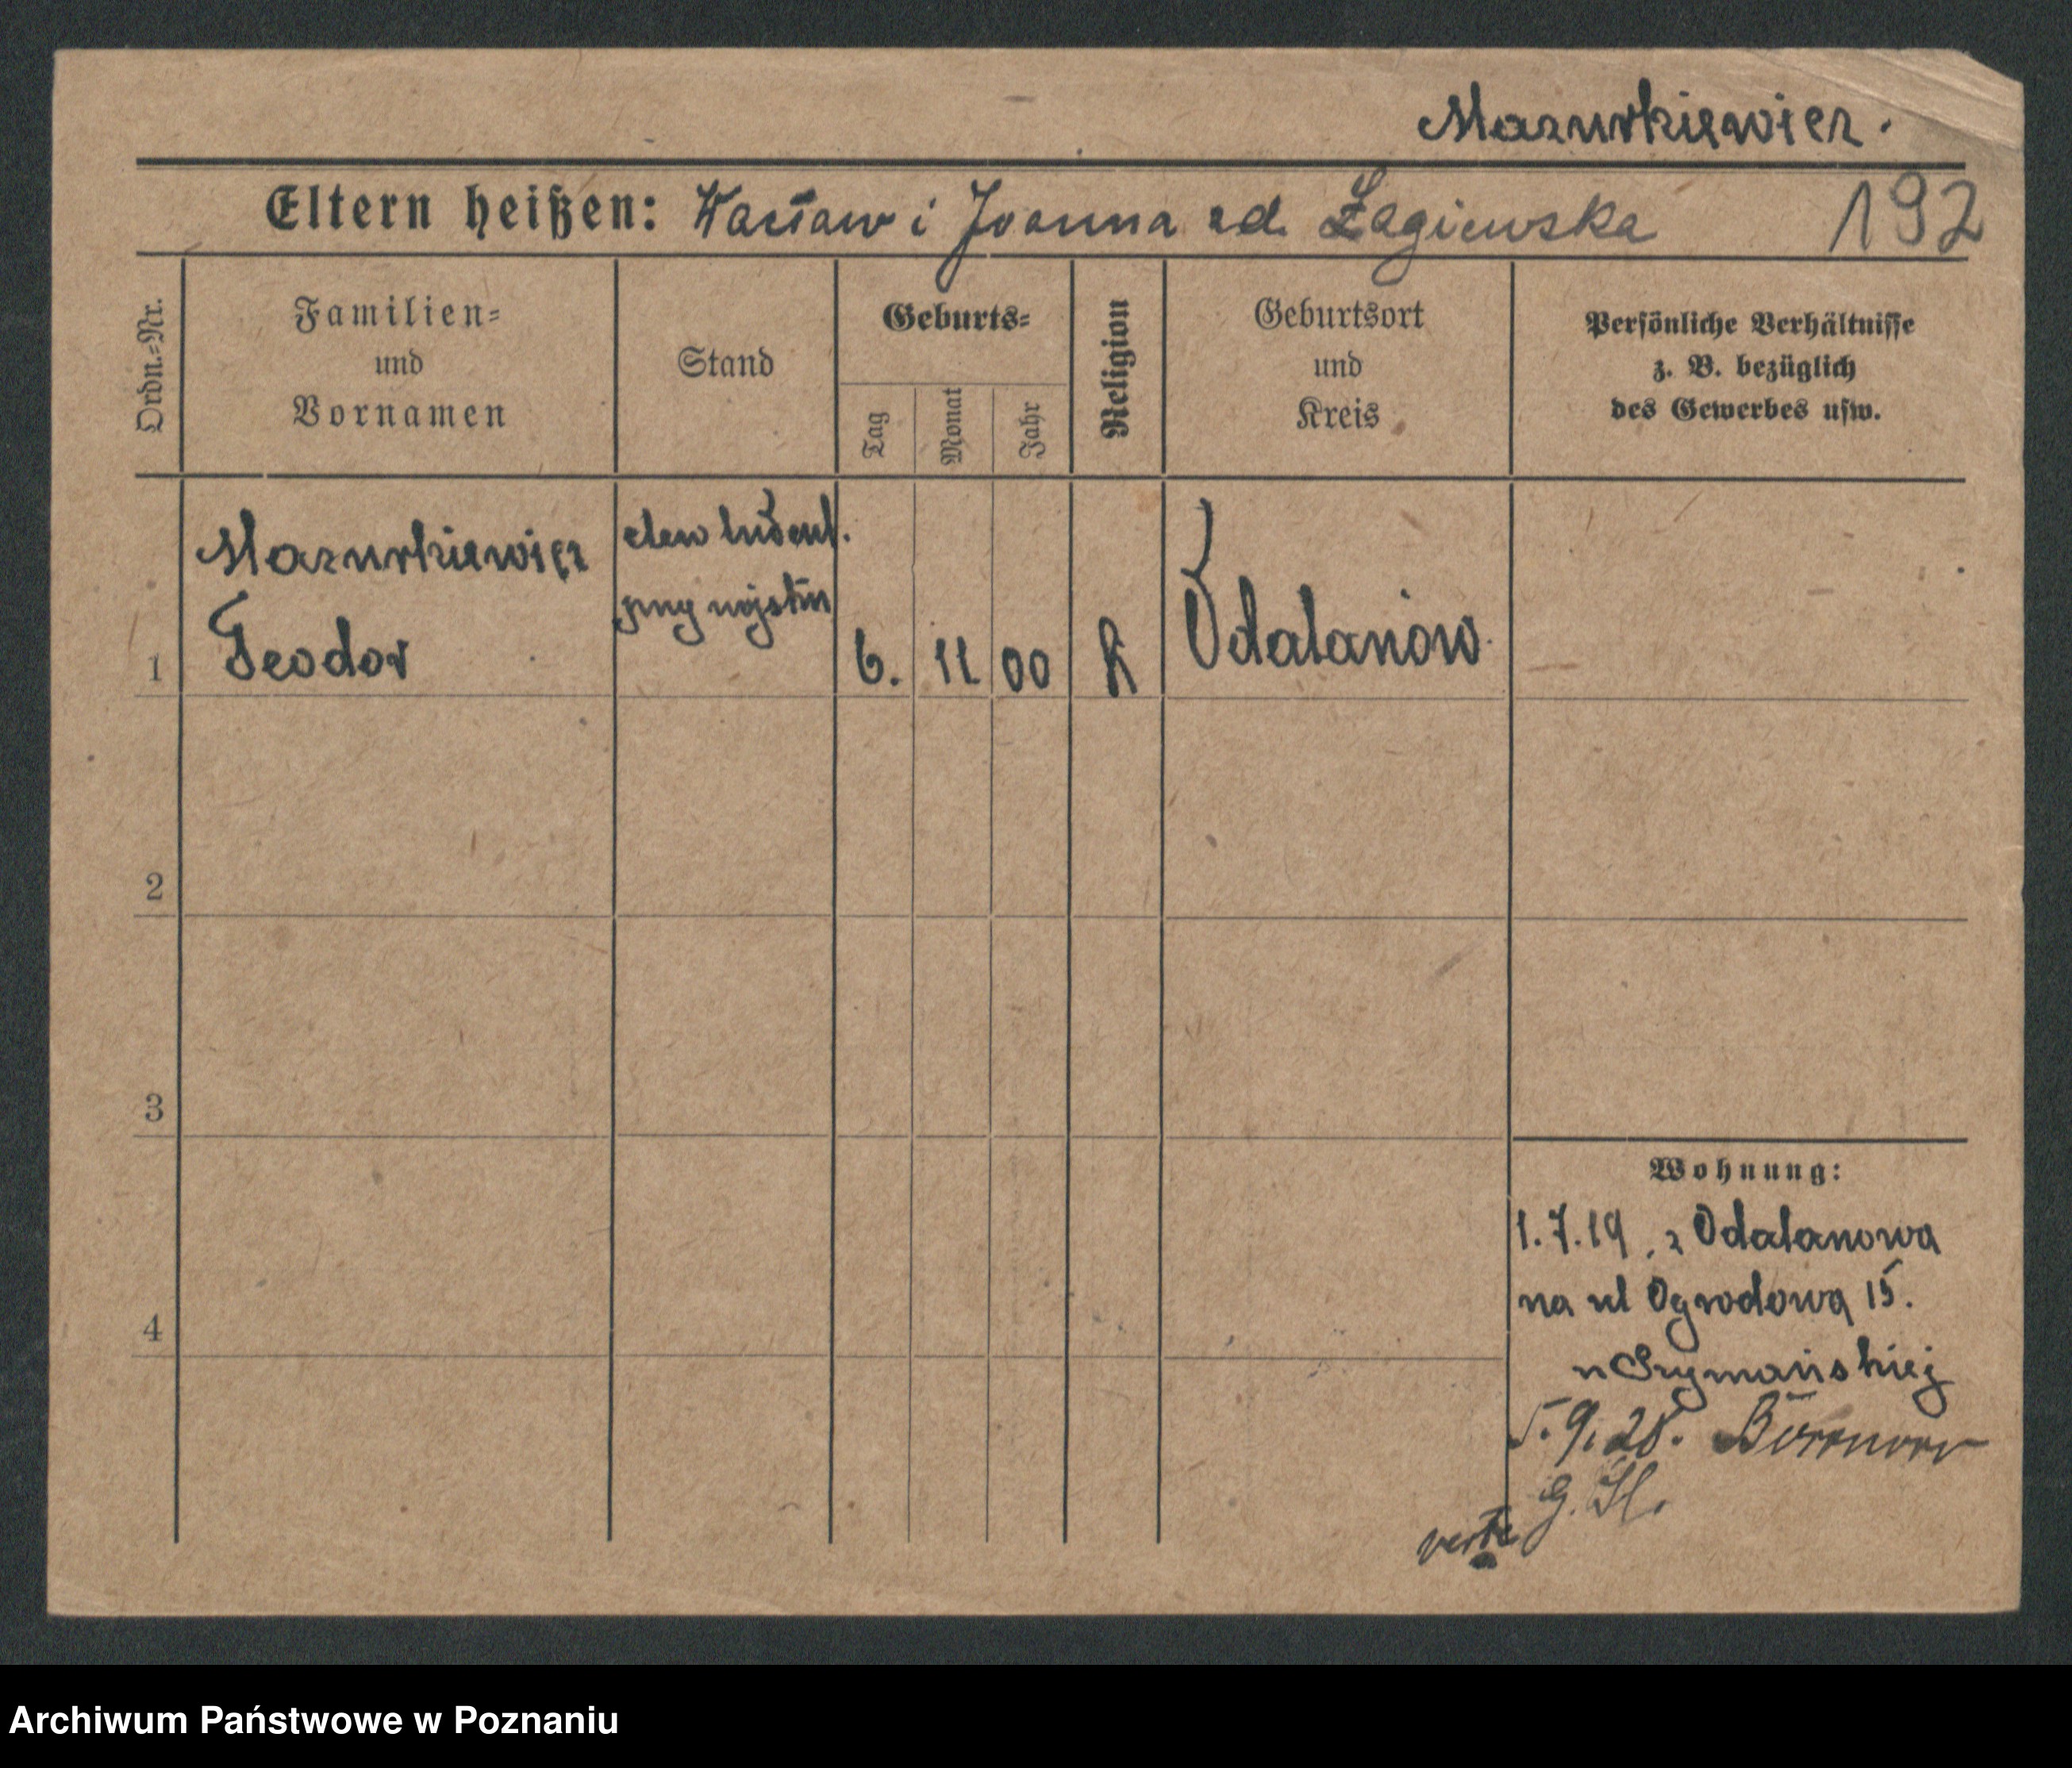 Mazurkiewicz.
Eltern heißen: Wacław i Joanna zd. Łagiewska 192
Ordn.-Nr.
Familien-
und
Vornamen
Stand
Geburts-
Tag
Monat
Jahr
Religion
Geburtsort
und
Kreis
Persönliche Verhältnisse
z. B. bezüglich
des Gewerbes usw.
Mazurkiewicz
Teodor
elew
przy wojsku
1
6. 11 00 K
Odalanów
2
3
4
Wohnung:
1.7.19, z Odalanowa
na ul Ogrodową 15.
u Szymańskiej
5.9.28.
G. Sl.
verte
Archiwum Państwowe w Poznaniu